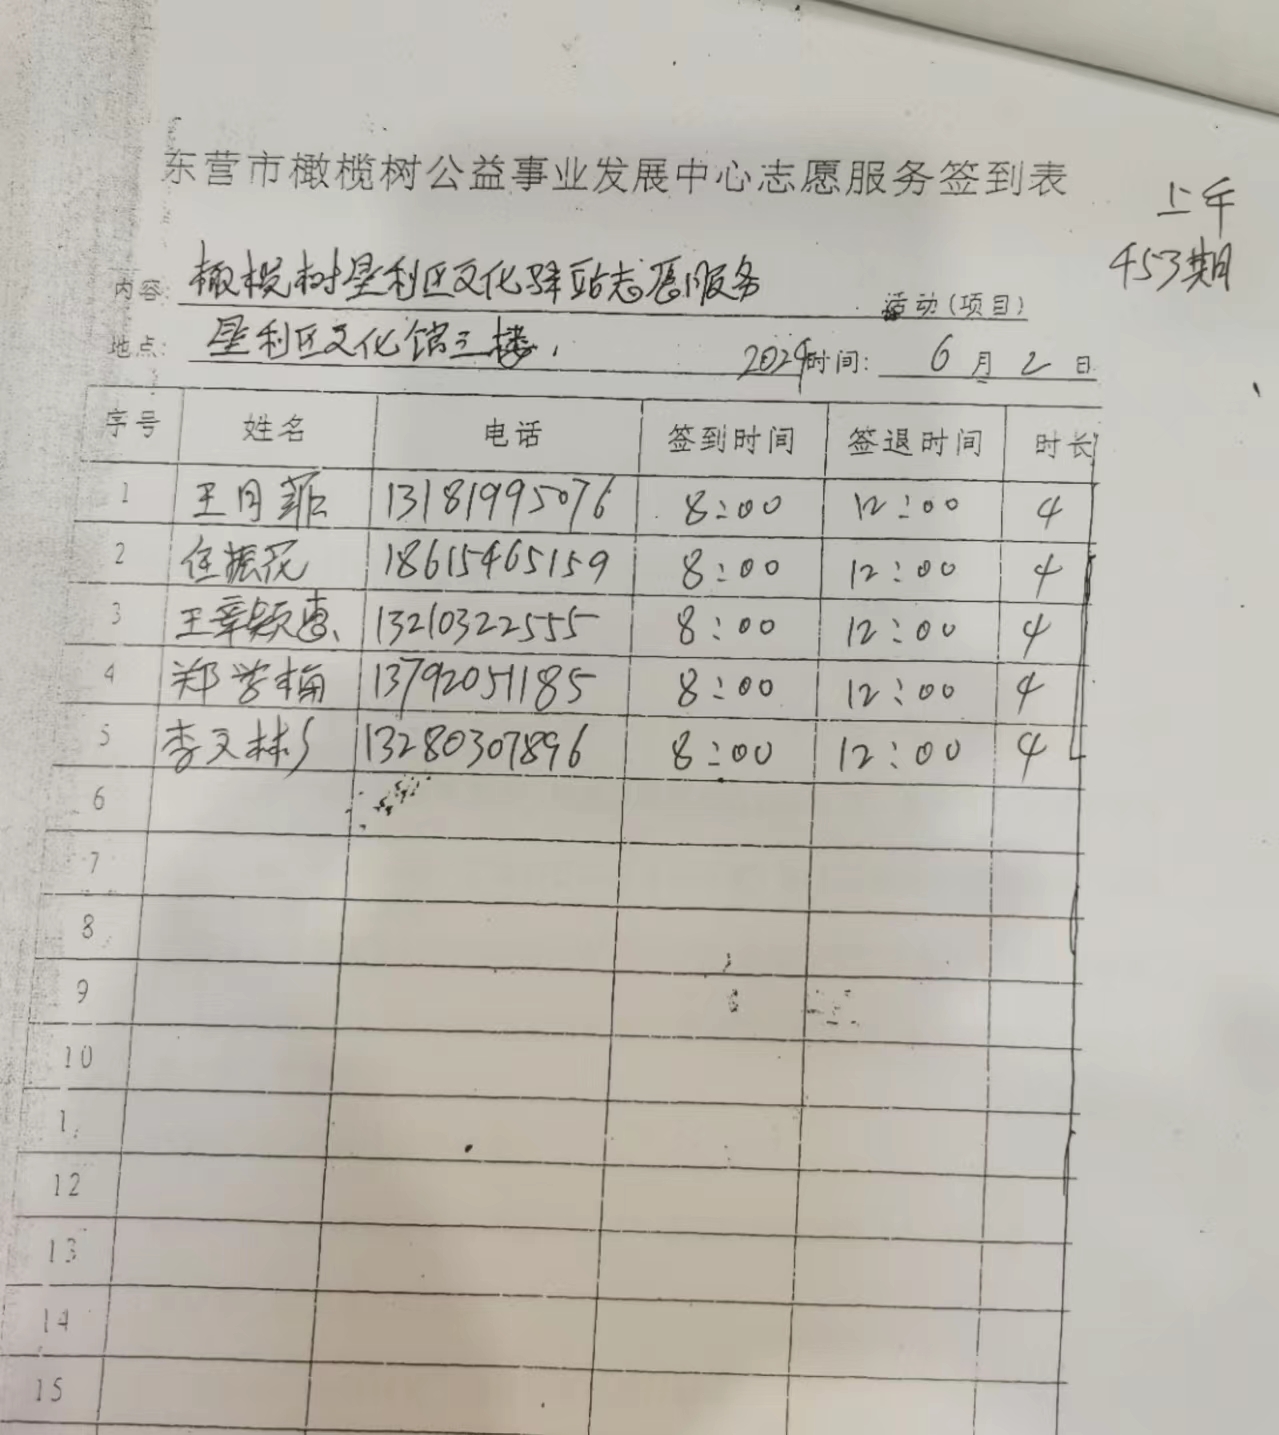 东营市橄榄树公益事业发展中心志愿服务签到表
上午
453期
内容: 橄榄树垦利区文化驿站志愿服务 活动(项目)
地点: 垦利区文化馆三楼. 2024时间: 6月2日
序号 姓名 电话 签到时间 签退时间 时长
1 王月菲 13181995076 8:00 12:00 4
2 任振花 18615465159 8:00 12:00 4
3 王章颖惠 13210322555 8:00 12:00 4
4 郑学梅 13792051185 8:00 12:00 4
5 李文彬 13280307896 8:00 12:00 4
6
7
8
9
10
1
12
13
14
15